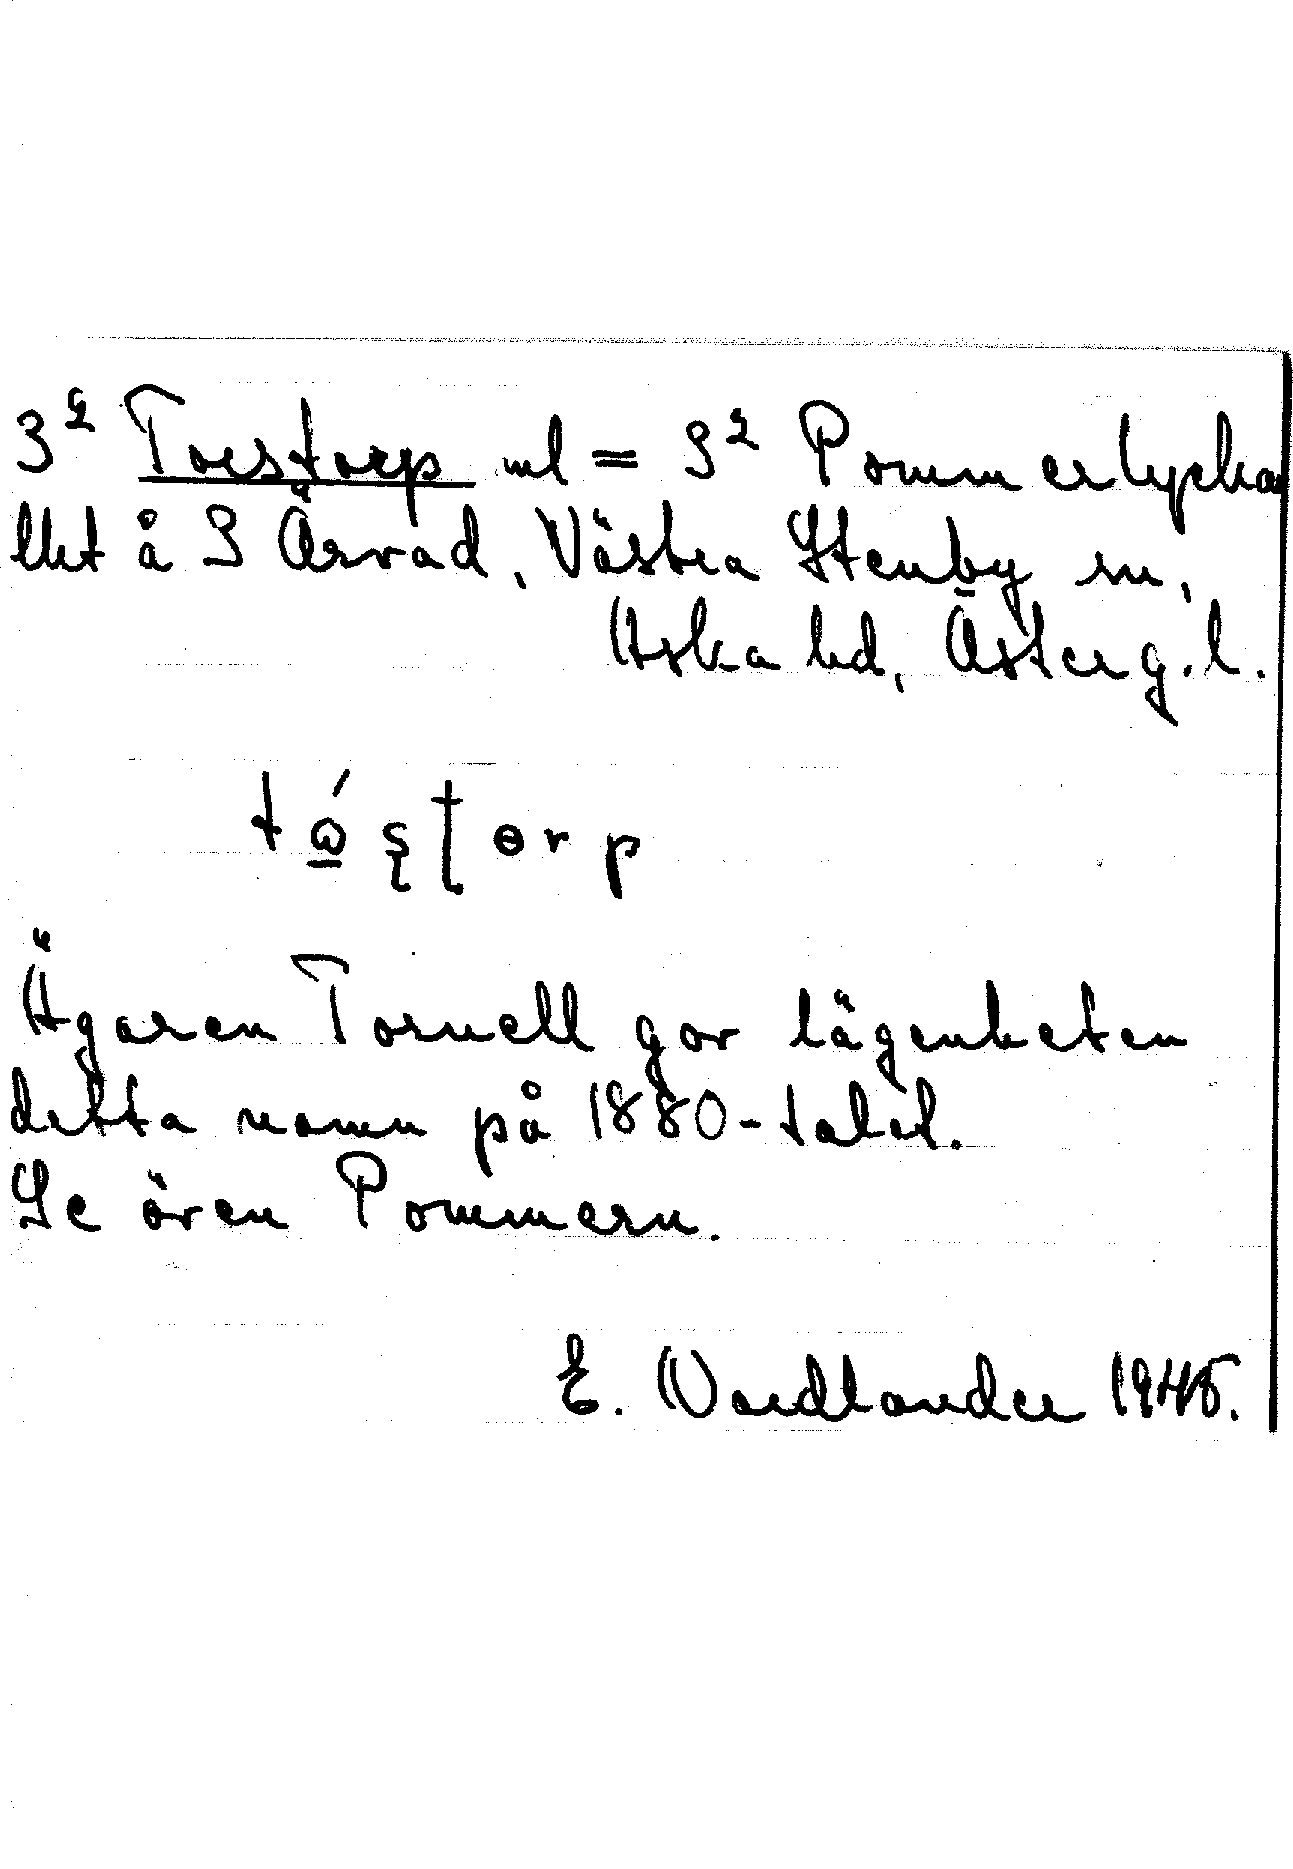 3² Torstorp ml = 3² Pommerlycka
lht å S Ärvad, Västra Stenby sn,
Aska hd, Österg. l.
tώ̱ʂʈɵrp
Ägaren Tornell gav lägenheten
detta namn på 1880-talet.
Se även Pommern.
E. Nordlander 1945.